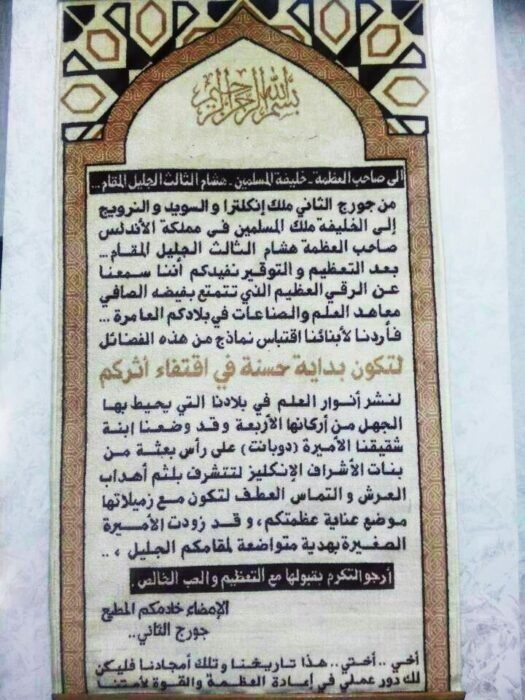 بسم الله الرحمن الرحيم
إلى صاحب العظمة - خليفة المسلمين - هشام الثالث الجليل المقام ...
من جورج الثاني ملك إنكلترا و السويد و النرويج
إلى الخليفة ملك المسلمين في مملكة الأندلس
صاحب العظمة هشام الثالث الجليل المقام ...
بعد التعظيم و التوقير نفيدكم أننا سمعنا
عن الرقي العظيم الذي تتمتع بفيضه الصافي
معاهد العلم والصناعات في بلادكم العامرة ...
فأردنا لأبنائنا اقتباس نماذج من هذه الفضائل
لتكون بداية حسنة في اقتفاء أثركم
لنشر أنوار العلم في بلادنا التي يحيط بها
الجهل من أركانها الأربعة و قد وضعنا ابنة
شقيقنا الأميرة (دوبانت) على رأس بعثة من
بنات الأشراف الإنكليز لتتشرف بلثم أهداب
العرش و التماس العطف لتكون مع زميلاتها
موضع عناية عظمتكم، و قد زودت الأميرة
الصغيرة بهدية متواضعة لمقامكم الجليل ،..
أرجو التكرم بقبولها مع التعظيم و الحب الخالص .
الإمضاء خادمكم المطيع
جورج الثاني..
أخي .. أختي.. هذا تاريخنا و تلك أمجادنا فليكن
لك دور عملي في إعادة العظمة والقوة لأمتنا